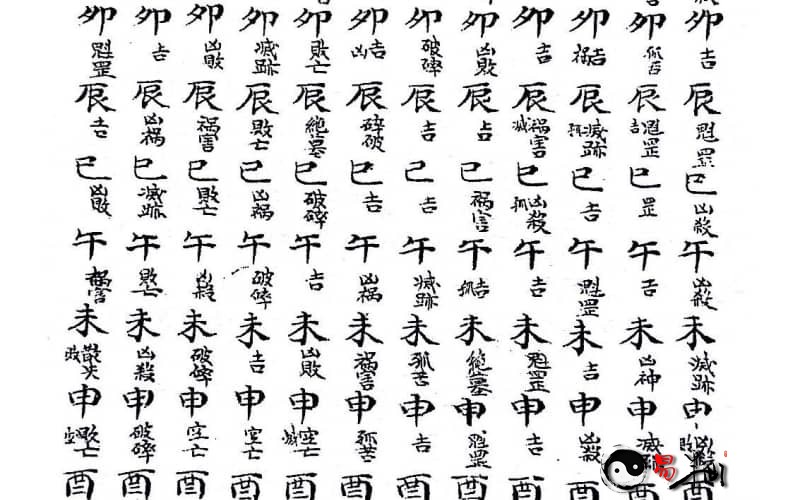 卯 吉 辰 魁罡 巳 凶殺 午 凶殺 未 滅跡 申 酉
卯 孤吉 辰 吉魁罡 巳 罡 午 吉 未 凶神 申 滅 酉
卯 祸吉 辰 孤滅跡 巳 吉 午 魁罡 未 吉 申 凶殺 酉
卯 吉 辰 滅祸害 巳 孤凶殺 午 吉 未 魁罡 申 吉 酉
卯 凶敗 辰 吉 巳 祸害 午 孤吉 未 絕墓 申 魁罡 酉
卯 破碎 辰 吉 巳 吉 午 滅跡 未 孤苦 申 吉 酉
卯 凶吉 辰 碎破 巳 吉 午 凶祸 未 祸害 申 孤苦 酉
卯 敗亡 辰 絕墓 巳 破碎 午 吉 未 凶敗 申 滅空亡 酉
卯 滅跡 辰 敗亡 巳 凶祸 午 破碎 未 吉 申 空亡 酉
卯 凶敗 辰 祸害 巳 敗亡 午 凶殺 未 破碎 申 空亡 酉
卯 吉 辰 凶祸 巳 滅跡 午 敗亡 未 凶殺 申 破碎 酉
卯 魁罡 辰 吉 巳 凶敗 午 祸害 未 申 空敗亡 酉
易